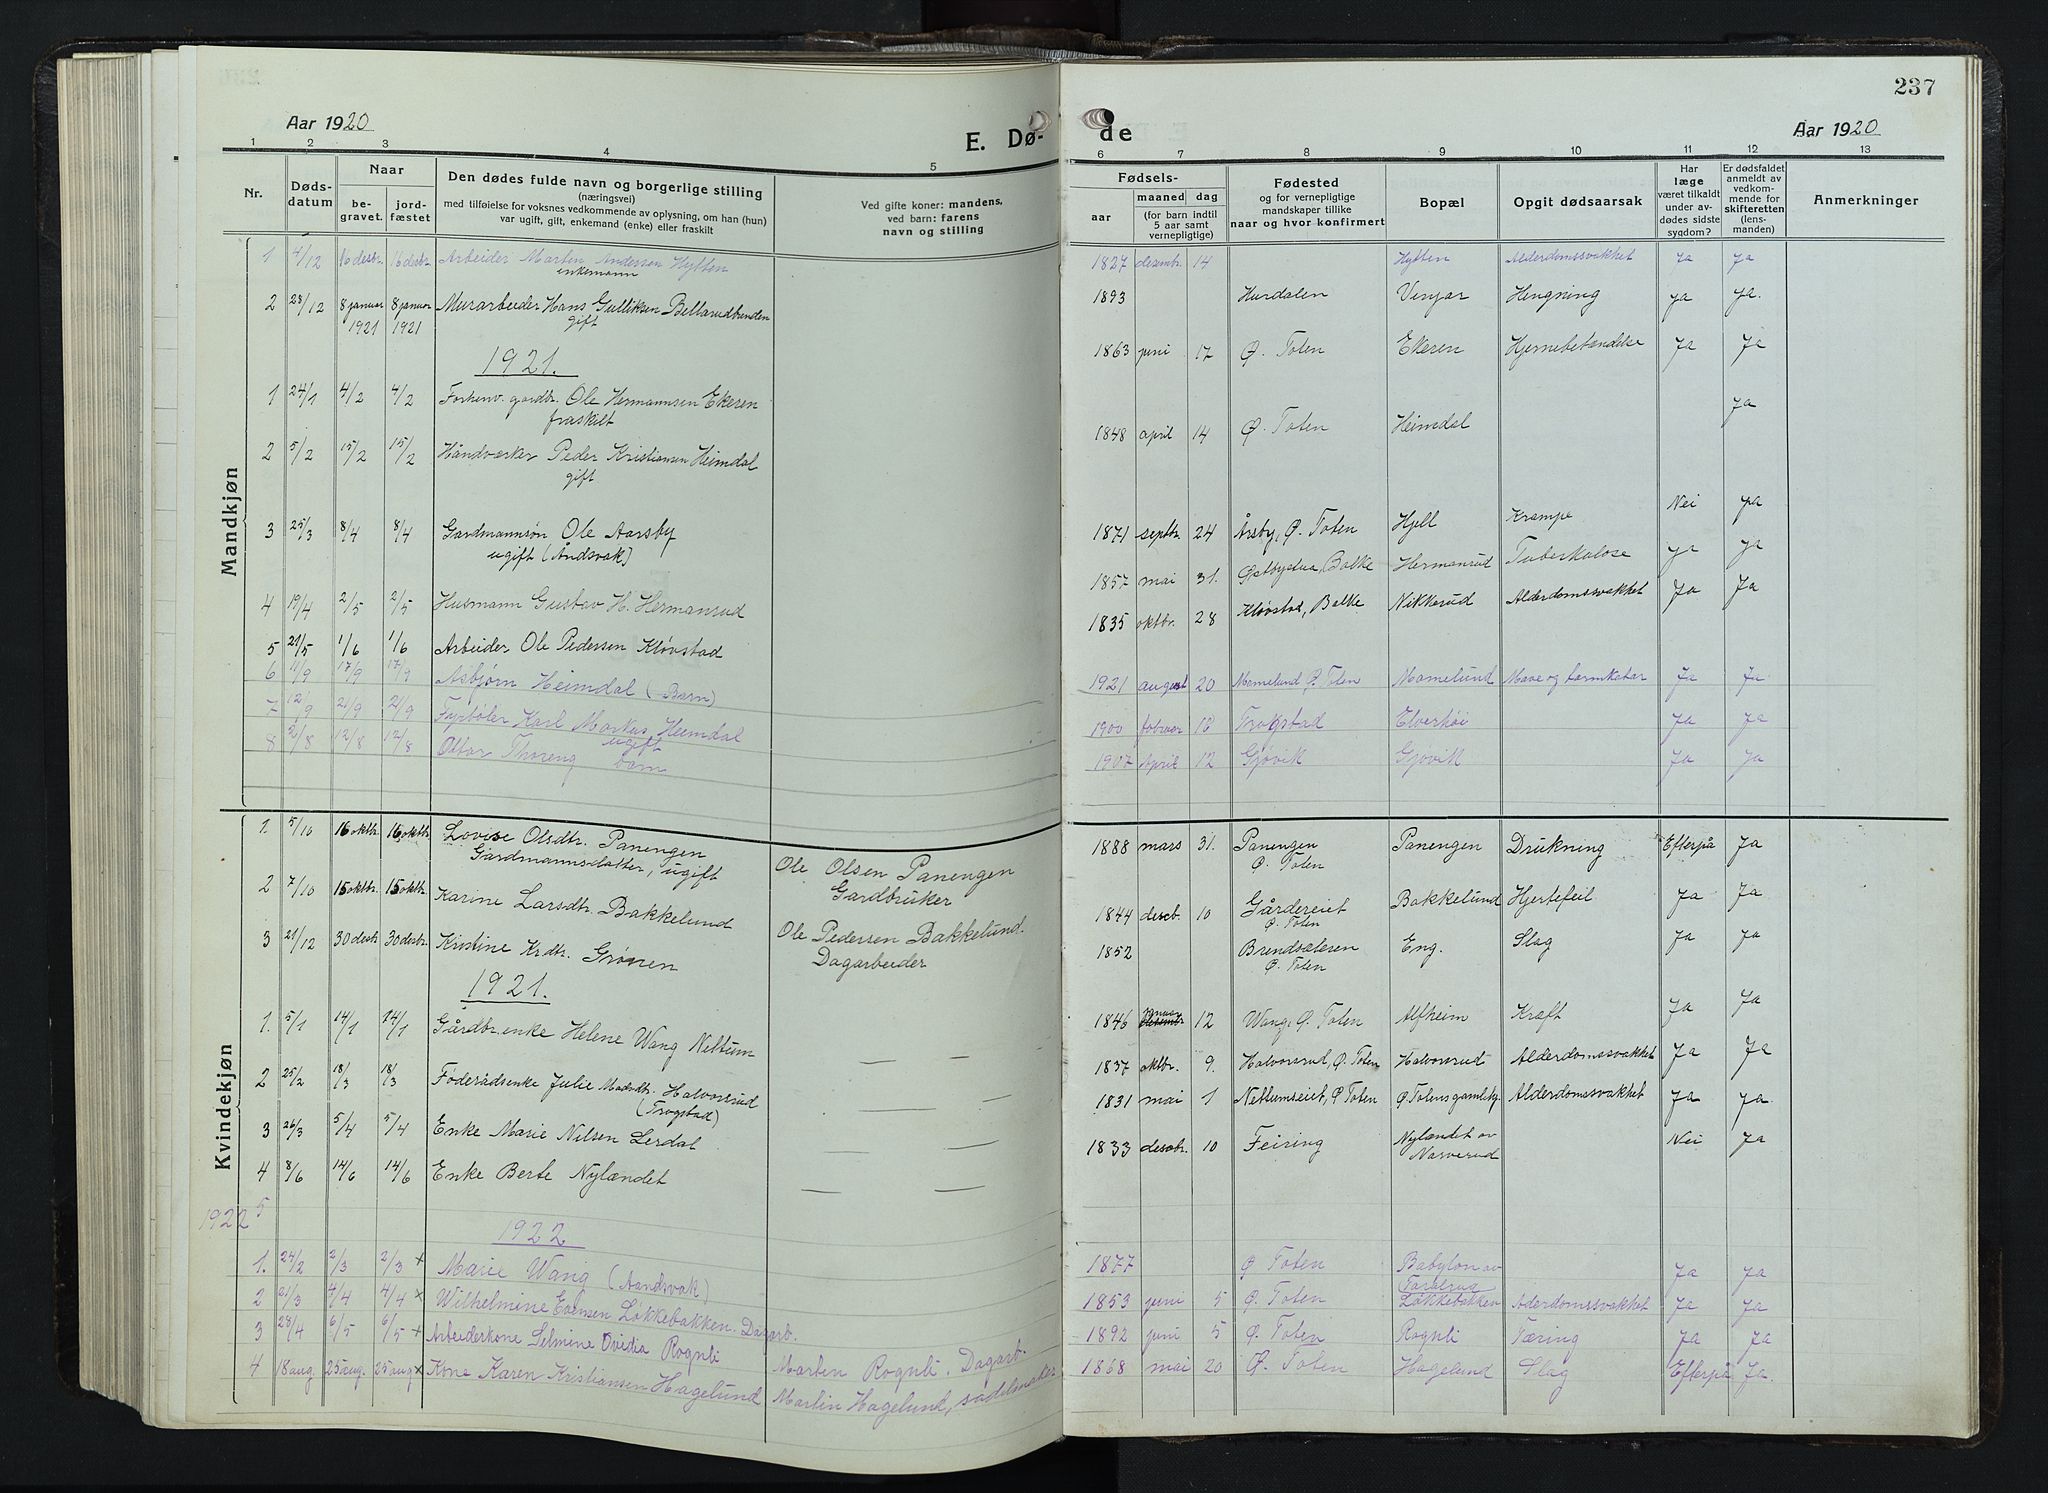 237
Aar 1920
E. Dø-
de
Aar 1920
1 2 3 4 5
6 7 8 9 10 11 12 13
Nr.
Døds-
datum
Naar
be-
gravet.
jord-
fæstet
Den dødes fulde navn og borgerlige stilling
(næringsvei)
med tilføielse for voksnes vedkommende av oplysning, om han (hun)
var ugift, gift, enkemand (enke) eller fraskilt
Ved gifte koner: mandens,
ved barn: farens
navn og stilling
Fødsels-
aar
maaned dag
(for barn indtil
5 aar samt
vernepligtige)
Fødested
og for vernepligtige
mandskaper tillike
naar og hvor konfirmert
Bopæl
Opgit dødsaarsak
Har
læge
været tilkaldt
under av-
dødes sidste
sygdom?
Er dødsfaldet
anmeldt av
vedkom-
mende for
skifteretten
(lens-
manden)
Anmerkninger
Mandkjøn
1 4/12 16 desbr. 16 desbr. Arbeider Marten Andersen Hytten
enkemann
1827 desembr. 14 Hytten Alderdomssvakhet Ja Ja
2 28/12 8 januar 8 januar Murarbeider Hans Gulliksen Bellarudbunden
1921 1921 gift
1893 Hurdalen Venjar Hengning Ja Ja.
1921.
1 24/1 4/2 4/2 Forhenv. gardbr. Ole Hermannsen Ekeren
fraskilt
1863 juni 17 Ø. Toten Ekeren Hjernebetændelse Ja Ja
2 5/2 15/2 15/2 Håndverker Peder Kristiansen Heimdal
gift
1848 april 14 Ø. Toten Heimdal Ja
3 25/3 8/4 8/4 Gardmannsøn Ole Aarsby
ugift (Åndsvak)
1871 septbr. 24 Årsby, Ø. Toten Hjell Krampe Nei Ja
4 19/4 2/5 2/5 Husmann Gustav H. Hermanrud
1857 mai 31. Østbystua, Balke Hermanrud Tuberkulose Ja Ja
5 21/5 1/6 1/6 Arbeider Ole Pedersen Kløvstad
1835 oktbr. 28 Kløvstad, Balke Nikkerud Alderdomssvakhet Ja Ja
6 11/9 17/9 17/9 Asbjørn Heimdal (Barn)
1921 august 20 Mamelund Ø. Toten Mamelund Mave og tarmkatar Ja Ja
7 12/9 21/9 21/9 Fyrbøter Karl Markus Heimdal
ugift
1900 februar Trogstad Elverhøi Ja Ja
8 2/8 12/8 12/8 Ottar Thoreng barn
1907 April 12 Gjøvik Gjøvik Ja Ja
Kvindekjøn
1. 5/10 16 oktbr. 16 oktbr. Lovise Olsdtr. Panengen
Gårdmannsdatter, ugift
Ole Olsen Panengen
Gardbruker
1888 mars 31. Panengen Panengen Drukning Efterpå Ja
Ø. Toten
2 7/10 15 oktbr. 15 oktbr. Karine Larsdtr. Bakkelund
Ole Pedersen Bakkelund.
Dagarbeider
1844 desbr. 10 Gårdereiet Bakkelund Hjertefeil Ja Ja
Ø. Toten
3 21/12 30 desbr. 30 desbr. Kristine Krdtr. Grønen
1852 Brendsætesen Eng. Slag Ja Ja
Ø. Toten
1921.
1. 5/1 14/1 14/1 Gårdbr.enke Helene Wang Nettum — —
1846 januar 12 Wang, Ø. Toten Alfheim Kræft Ja Ja
2 25/2 18/3 18/3 Føderådsenke Julie Madsdtr. Halvorsrud
(Trogstad) — —
1837 oktbr. 9. Halvorsrud, Ø. Toten Halvorsrud Alderdomssvakhet Ja Ja
3 26/3 5/4 5/4 Enke Marie Nilsen Lerdal — —
1831 mai 1 Nettumseiet, Ø Toten Ø Totens gamlehj. Alderdomssvakhet Ja Ja.
4 8/6 14/6 14/6 Enke Berte Nylændet — —
1833 desbr. 10 Feiring Nylændet av Nei Ja
Narverud
1922 5
1922
1. 24/2 2/3 2/3 + Marie Wang (Aandsvak)
1877 Ø Toten Babylon av Ja Ja
2 21/3 4/4 4/4 × Wilhelmine Evensen Løkkebakken. Dagarb.
1853 juni 5 Ø. Toten Løkkebakken Aderdomssvakhet Ja Ja
3 28/4 6/5 6/5 + Arbeiderkone Selmine Ovidia Rognli
Martin Rognli. Dagarb.
1892 juni 5 Ø. Toten Rognli Tæring Ja Ja
4 18 aug. 25 aug. 25 aug × Kone Karen Kristiansen Hagelund
Martin Hagelund, sadelmaker
1868 mai 20 Ø. Toten Hagelund Slag Efterpå Ja.